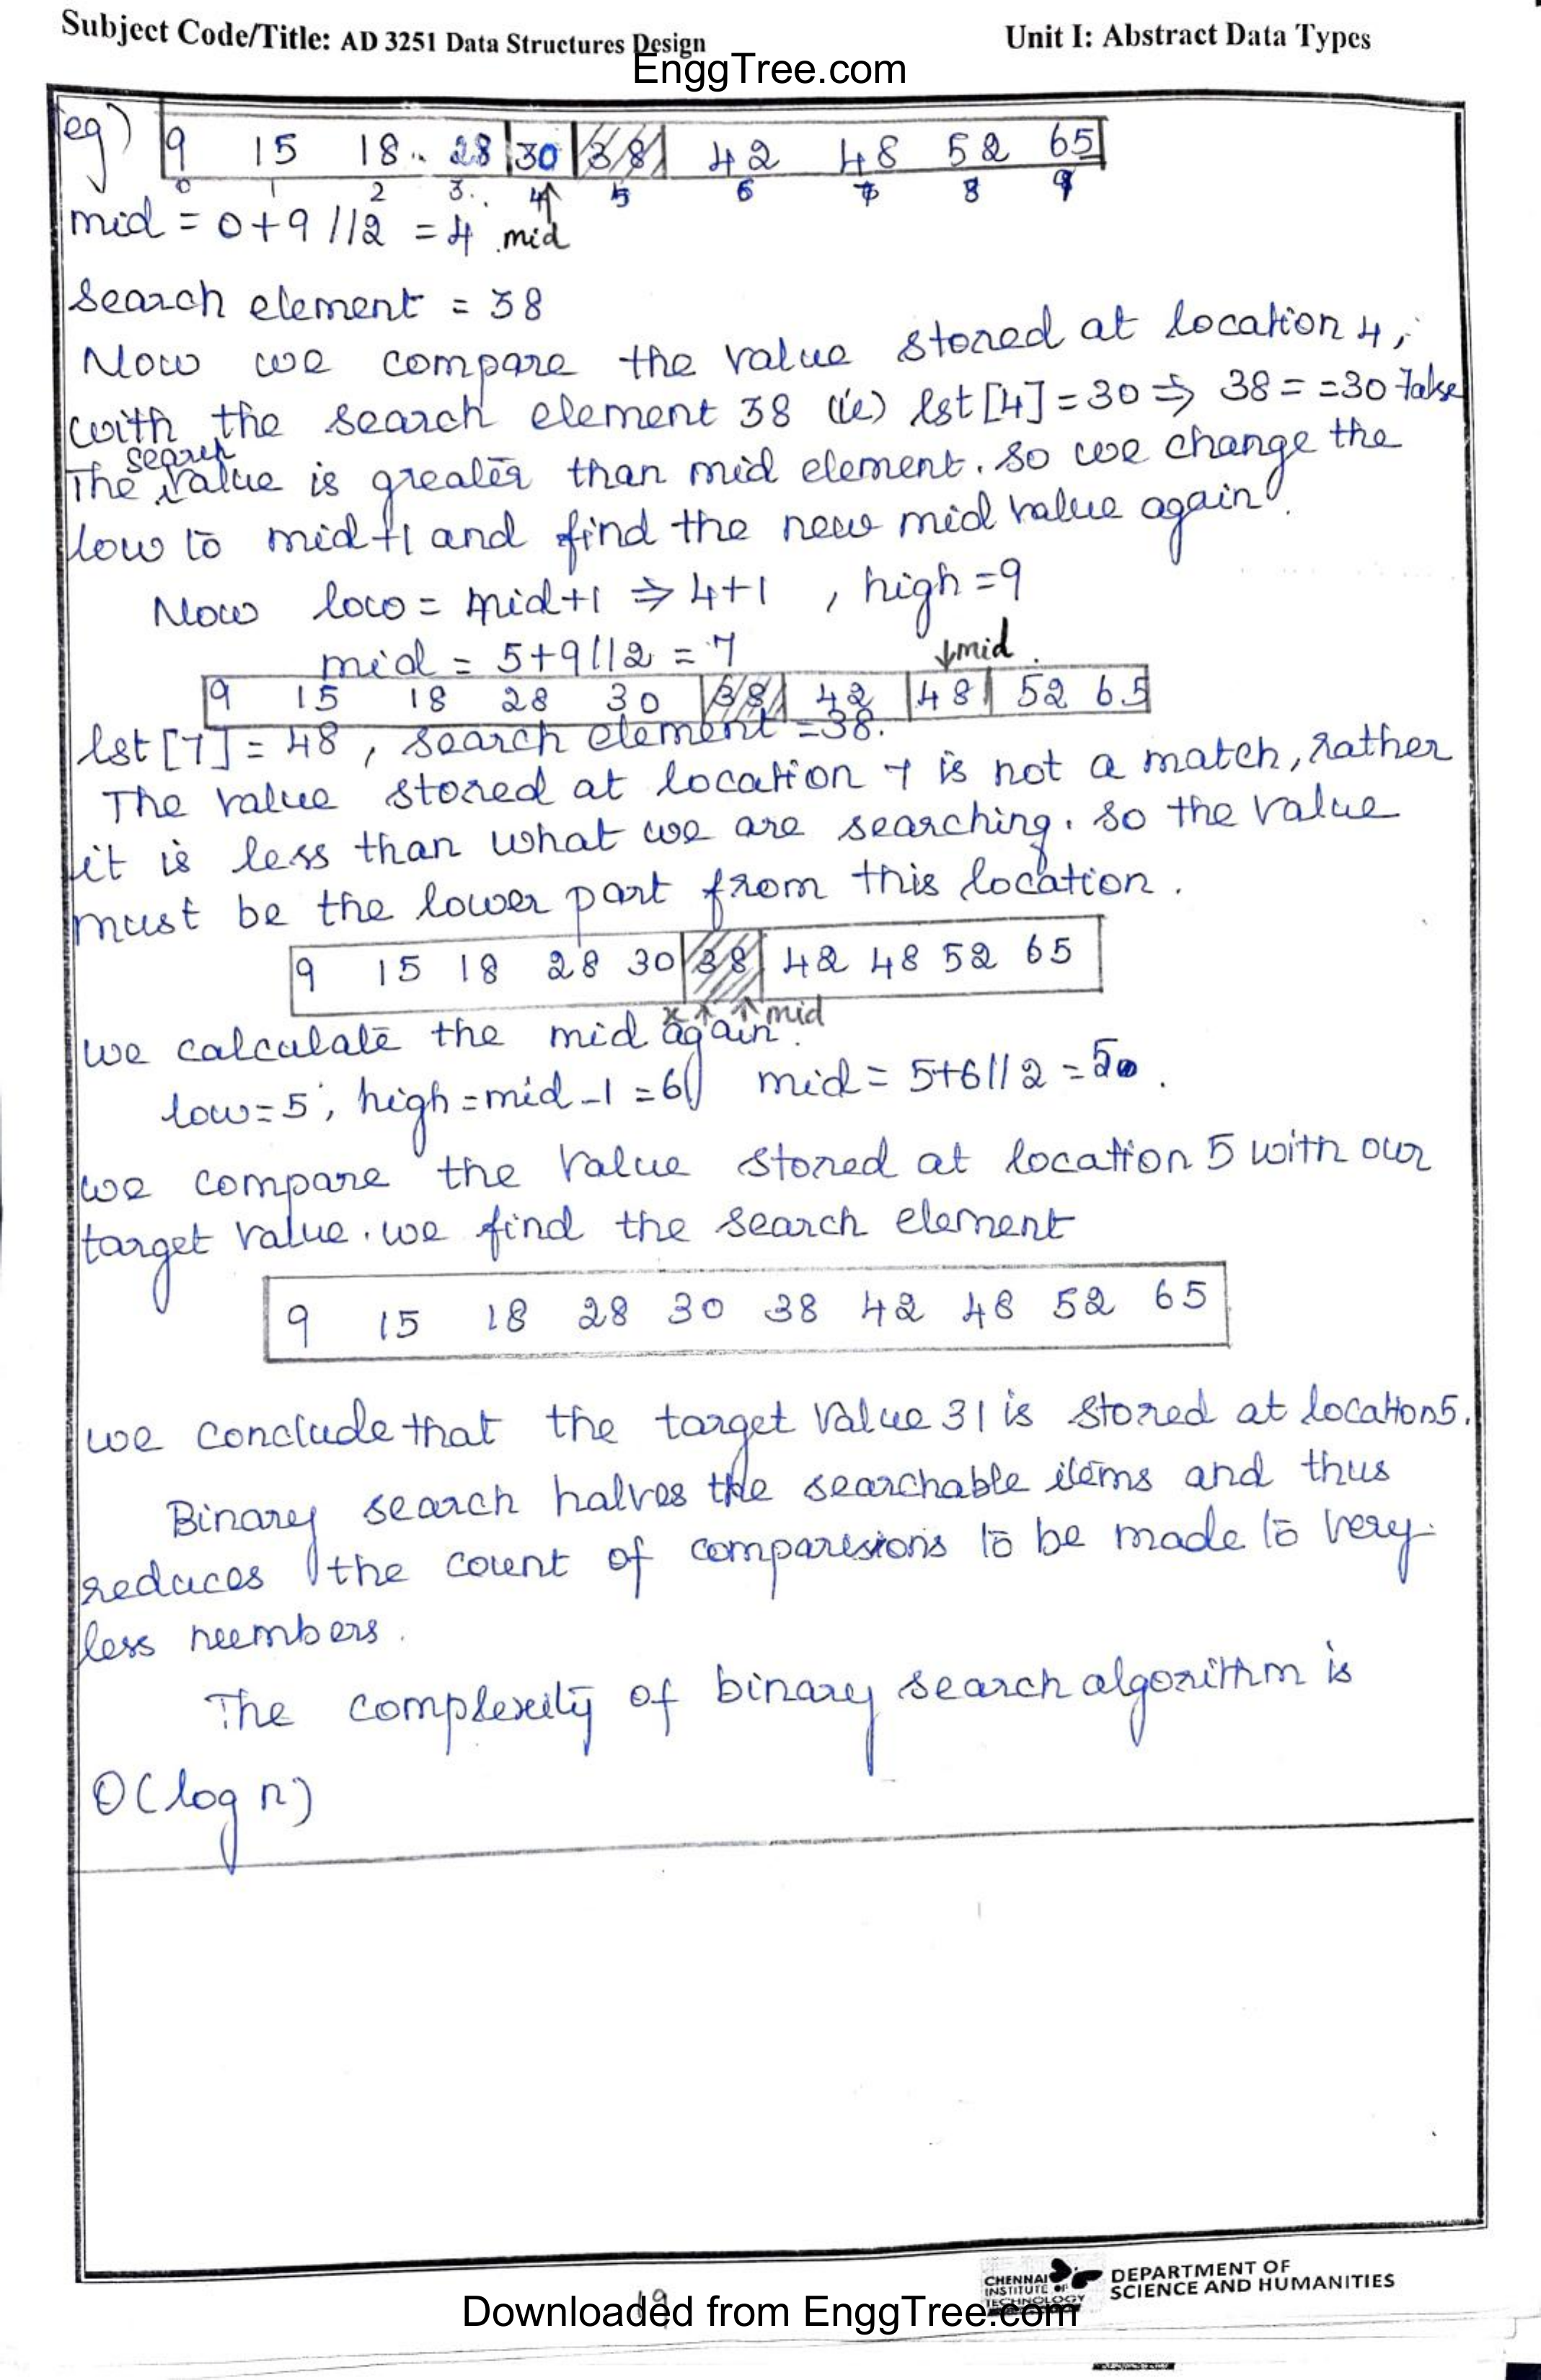 Subject Code/Title: AD 3251 Data Structures Design
Unit I: Abstract Data Types
EnggTree.com
eg) 9 15 18 28 30 38 42 48 52 65
0 1 2 3 4 5 6 7 8 9
mid = 0+9//2 = 4 mid
Search element = 38
Now we compare the value stored at location 4,
with the search element 38 (ie) lst[4] = 30 ⇒ 38 = = 30 False
search
The value is greater than mid element. So we change the
low to mid+1 and find the new mid value again.
Now low = mid+1 ⇒ 4+1 , high = 9
mid = 5+9//2 = 7
↓mid
9 15 18 28 30 38 42 48 52 65
lst[7] = 48 , search element = 38.
The value stored at location 7 is not a match, rather
it is less than what we are searching. So the value
must be the lower part from this location.
9 15 18 28 30 38 42 48 52 65
mid
we calculate the mid again.
low = 5 , high = mid - 1 = 6 mid = 5+6//2 = 5
we compare the value stored at location 5 with our
target value. we find the search element
9 15 18 28 30 38 42 48 52 65
we conclude that the target value 31 is stored at location 5.
Binary search halves the searchable items and thus
reduces the count of comparisions to be made to very
less numbers.
The complexity of binary search algorithm is
O(log n)
CHENNAI
INSTITUTE OF
TECHNOLOGY
DEPARTMENT OF
SCIENCE AND HUMANITIES
19
Downloaded from EnggTree.com